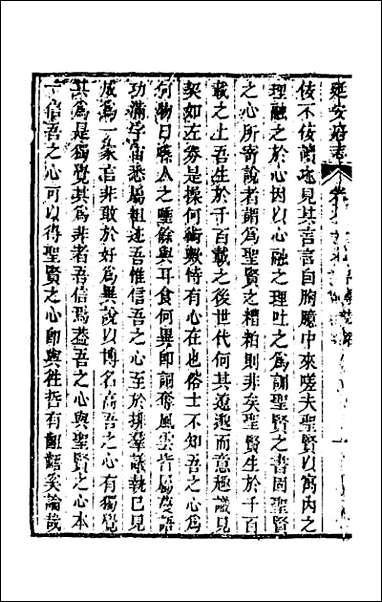 延安府志
佞不佞讀 見其言言自胸臆中來嗟夫聖賢以寓內之
理融之於心因以心融之理吐之為訓聖賢之書固聖賢
之心所寄說者謂為聖賢之糟粕則非矣聖賢生於千百
載之上吾生於千百載之後世代何其遼邈而意趣識見
契如左券是操何術歟恃有心在也俗士不知吾之心為
何物日 人之唾餘與耳食何異即詞奪風雲皆屬 語
功滿宇宙悉屬粗迹吾惟信吾之心至於排羣議執已見
成為一家言非敢於好為異說以博名高吾之心有獨覺
其為是獨覺其為非者吾信焉蓋吾之心與聖賢之心本
一信吾之心可以得聖賢之心即與往哲有齟齬矣論哉